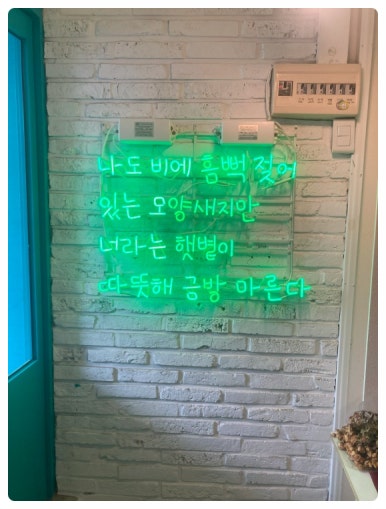 나도 비에 흠뻑 젖어
있는 모양새지만
너라는 햇볕이
따뜻해 금방 마른다